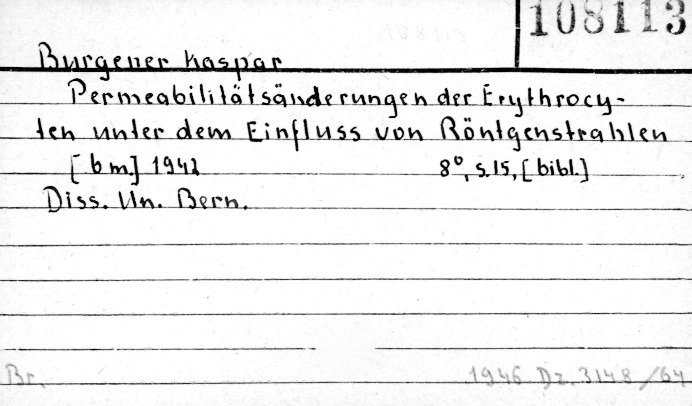 108113
Burgener Kaspar
Permeabilitätsänderungen der Erythrocy-
ten unter dem Einfluss von Röntgenstrahlen
[b m] 1942
8°, S. 15, [bibl.]
Diss. Un. Bern.
Br.
1946 Dz. 3148/64